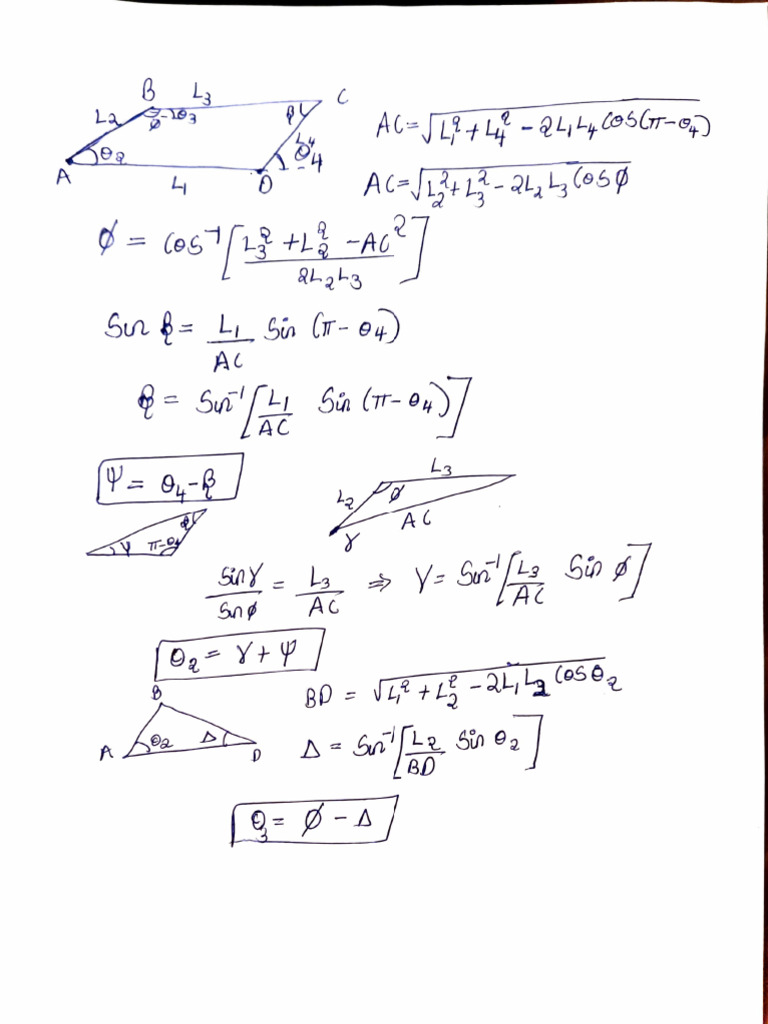 B L3 C
L2 φ θ3 β L4
A θ2 L1 D θ4
AC = √(L1² + L4² - 2L1L4 cos(π-θ4))
AC = √(L2² + L3² - 2L2L3 cos φ)
φ = cos⁻¹[(L3² + L2² - AC²)/(2L2L3)]
Sin β = L1/AC Sin (π-θ4)
β = Sin⁻¹[L1/AC Sin (π-θ4)]
ψ = θ4 - β
L3
L2 φ
AC
γ
β
ψ π-θ4
Sinγ/Sinφ = L3/AC ⇒ γ = Sin⁻¹[L3/AC Sin φ]
θ2 = γ + ψ
BD = √(L1² + L2² - 2L1L2 cosθ2)
B
A θ2 Δ D
Δ = Sin⁻¹[L2/BD Sin θ2]
θ3 = φ - Δ